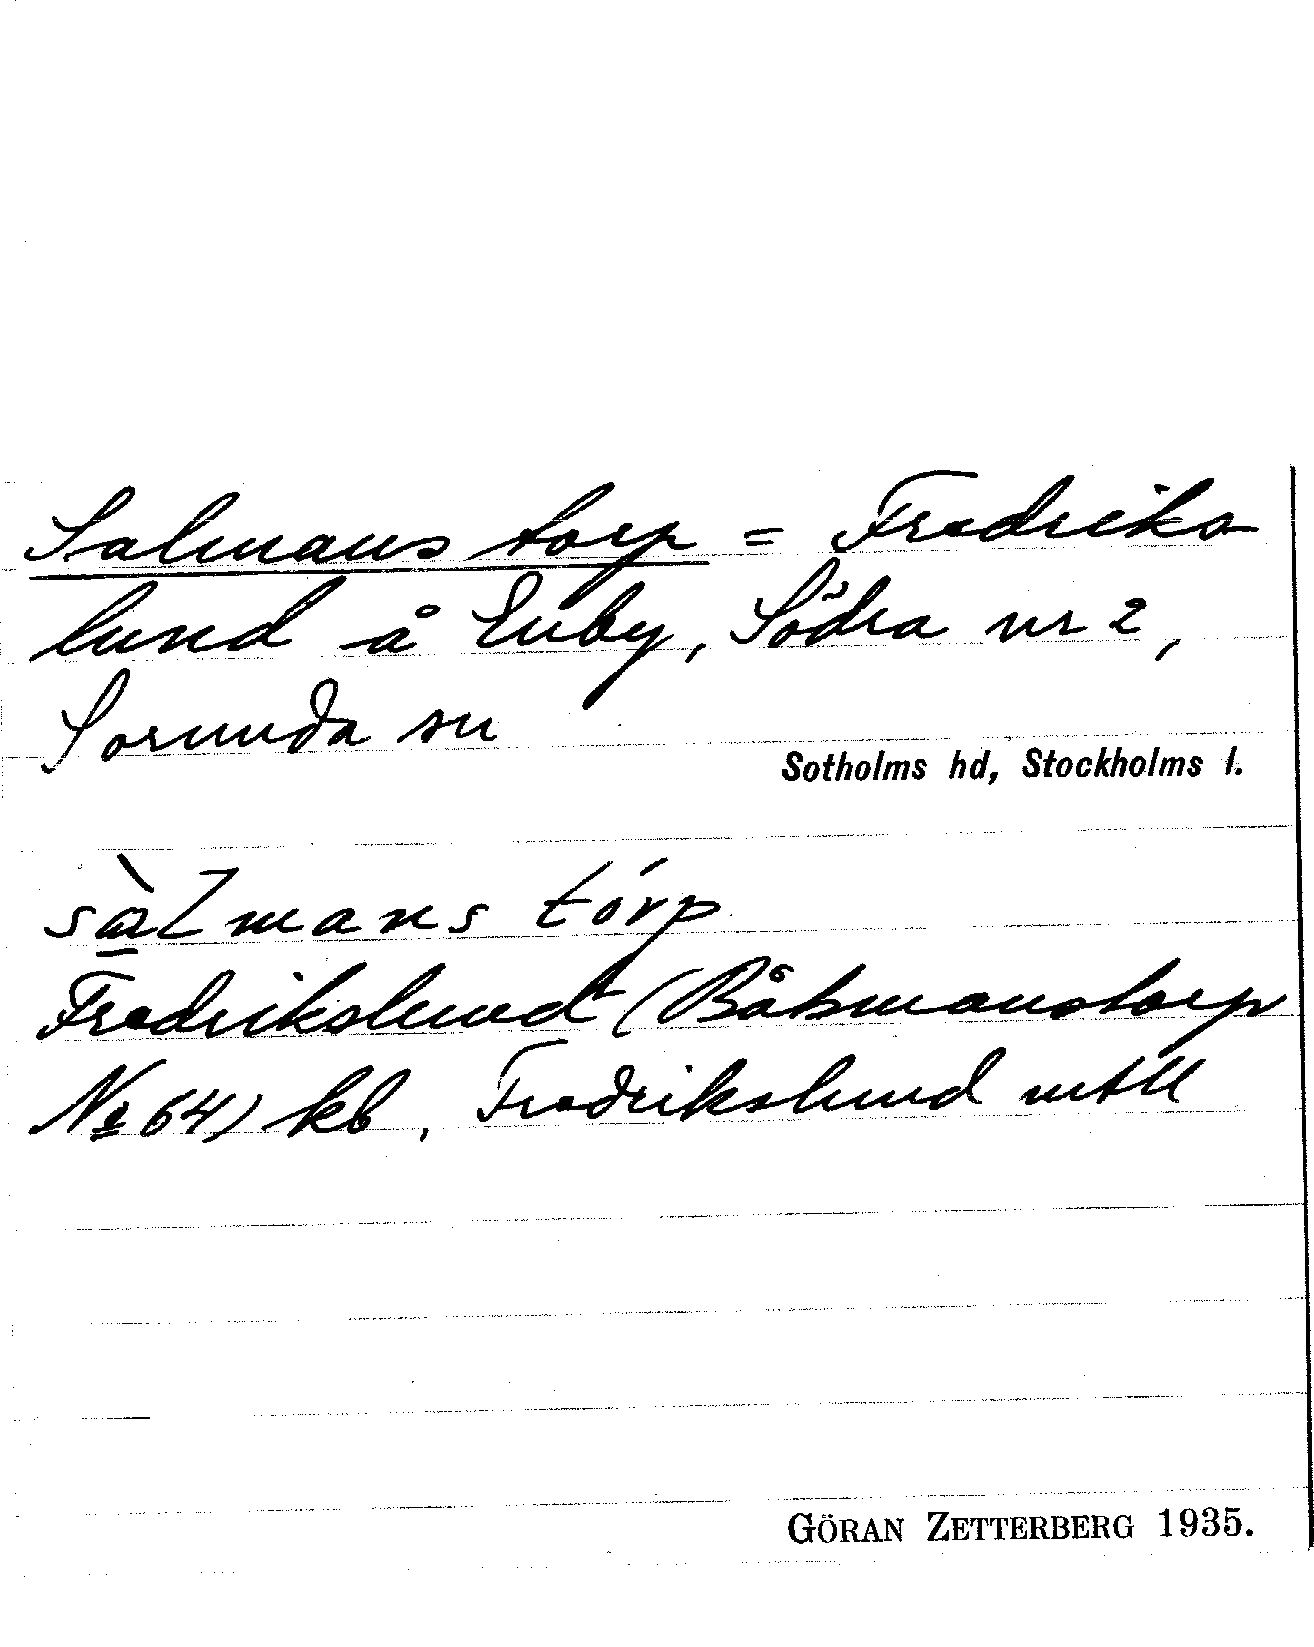 Salmans torp = Fredriks
lund å Enby, Södra nr 2,
Sorunda sn
Sotholms hd, Stockholms l.
sàlmans tórp
Fredrikslund (Båtsmanstorp
No 64) kb, Fredrikslund mtll
GÖRAN ZETTERBERG 1935.